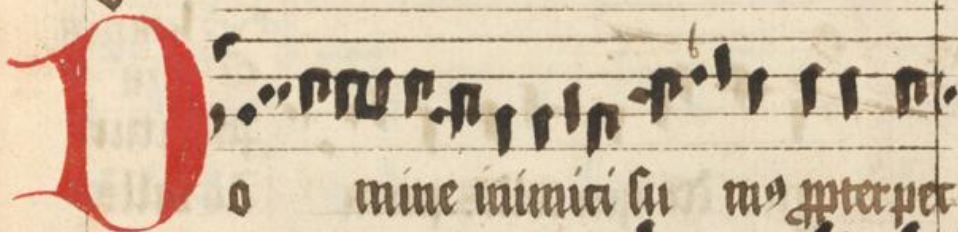 Do mine inimici su mꝯ ꝓpter pec